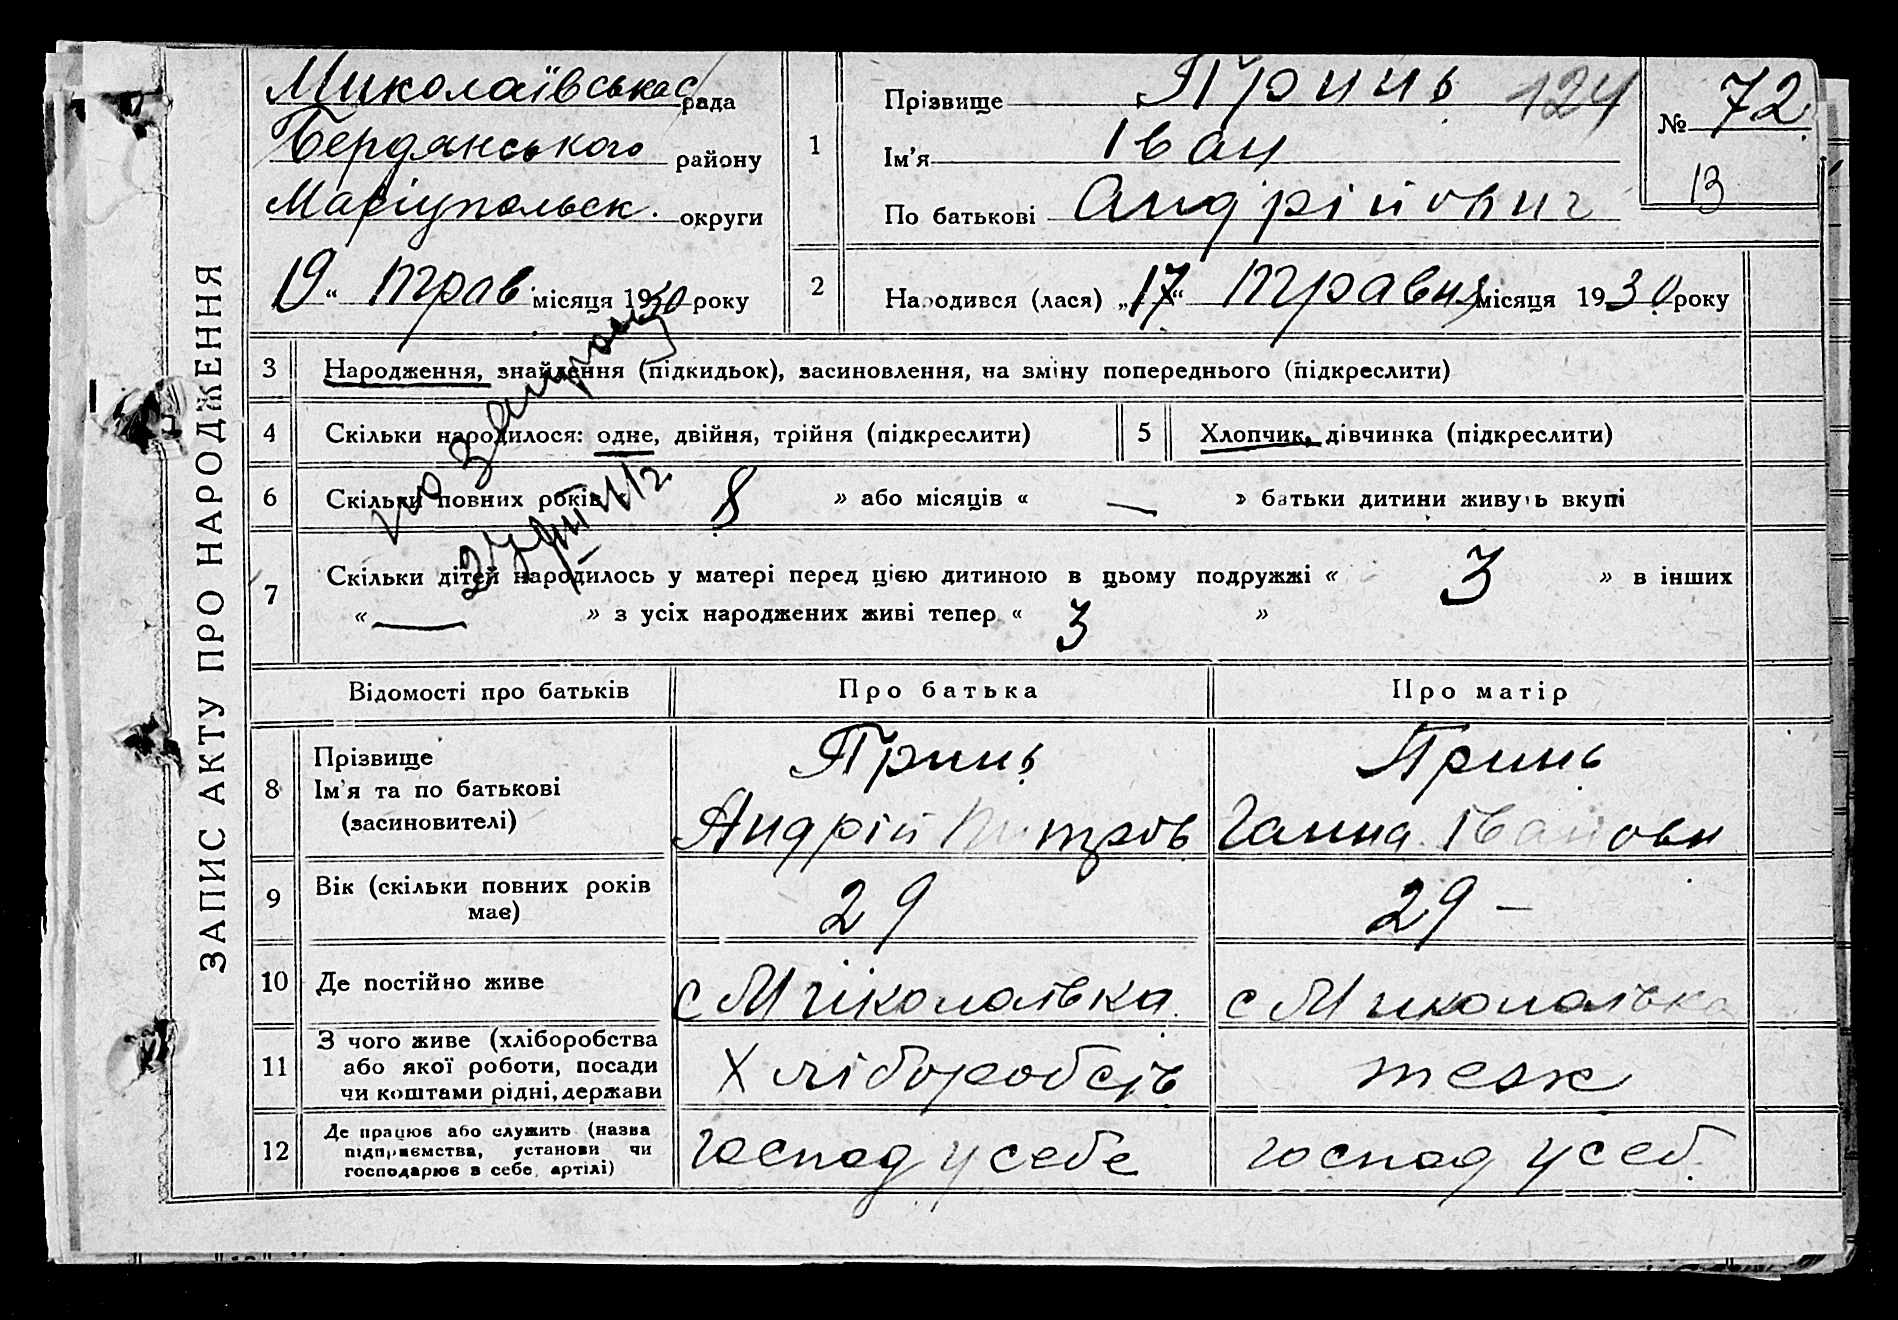 ЗАПИС АКТУ ПРО НАРОДЖЕННЯ
Миколаївська с/рада
Бердянського району
Маріупольськ. округи
19 “ трав місяця 1930 року
1
Прізвище Принь 124
Ім’я Іван
По батькові Андрійович
№ 72
13
2
Народився (лася) „17“ Травня місяця 1930 року
3 Народження, знайдення (підкидьок), засиновлення, на зміну попереднього (підкреслити)
4 Скільки народилося: одне, двійня, трійня (підкреслити)
5 Хлопчик, дівчинка (підкреслити)
6 Скільки повних років « 8 » або місяців « — » батьки дитини живуть вкупі
7 Скільки дітей народилось у матері перед цією дитиною в цьому подружжі « 3 » в інших
« — » з усіх народжених живі тепер « 3 »
Відомості про батьків Про батька Про матір
8
Прізвище
Ім’я та по батькові
(засиновителі)
Принь
Андрій Митров
Принь
Ганна Івановн
9
Вік (скільки повних років
має)
29
29 –
10 Де постійно живе
с Миколаївка
с Миколаївка
11
З чого живе (хліборобства
або якої роботи, посади
чи коштами рідні, держави
Хліборобств
теж
12
Де працює або служить (назва
підприємства, установи чи
господарює в себе, артілі)
господ у себе
господ у себ.